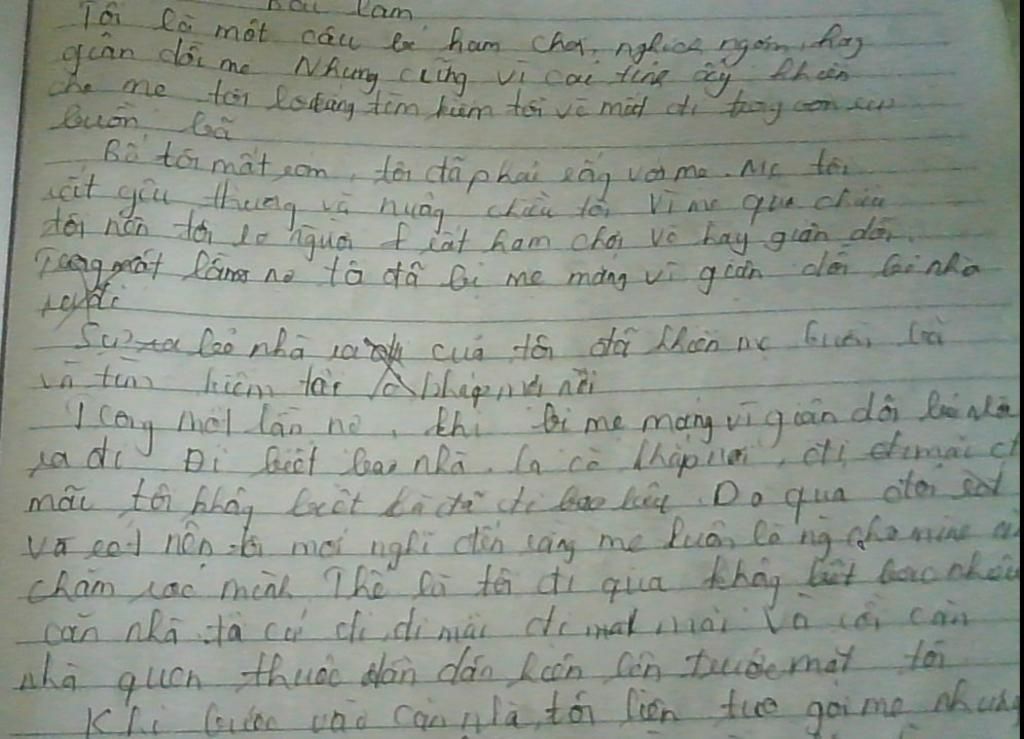 Bài làm
Tôi là một cậu bé ham chơi, nghịch ngợm, hay
giận dỗi mẹ Nhưng cũng vì cái tính ấy khiến
cho mẹ tôi lo lắng tìm kiếm tôi và mất đi trong
buồn bã
Bố tôi mất sớm, tôi đã phải sống với mẹ. Mẹ tôi
rất yêu thương và nuông chiều tôi Vì mẹ quá chiều
tôi nên tôi là người rất ham chơi và hay giận dỗi.
Trong một lần nọ tô đã bị mẹ mắng vì giận dỗi bỏ nhà
ra đi
Sự bỏ nhà ra của tôi đã khiến mẹ buồn bã
và tìm kiếm tôi ở khắp nơi
Trong một lần nọ, khi bị mẹ mắng vì giận dỗi bỏ nhà
ra đi Đi biết bao nhà. la cà khắp nơi, đi đi mãi
mãi tôi không biết là đã đi bao lâu. Do quá đói rét
và nên tôi mới nghĩ đến rằng mẹ luôn là ng cho mình
chăm sóc mình Thế là tôi đi qua không biết bao nhiêu
căn nhà. tô cứ đi, đi mãi đi mãi Và rồi căn
nhà quen thuộc dần dần hiện lên trước mắt tôi
Khi bước vào căn nhà, tôi liên tục gọi mẹ nhưng